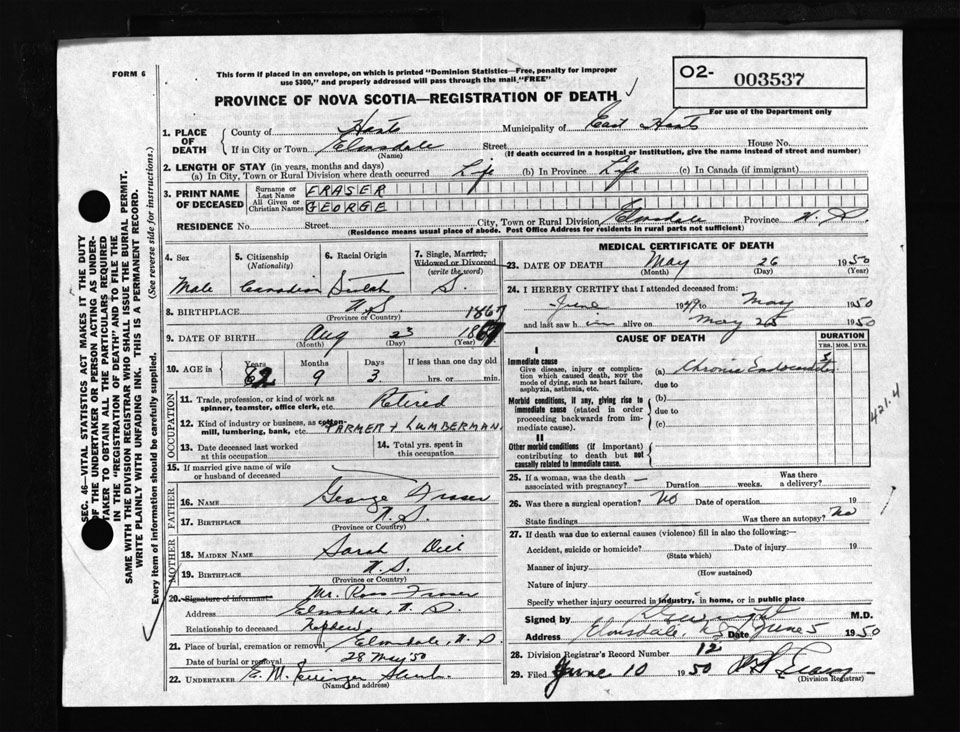 FORM 6
This form if placed in an envelope, on which is printed "Dominion Statistics—Free, penalty for improper
use $300," and properly addressed will pass through the mail, "FREE"
O2- 003537
For use of the Department only
PROVINCE OF NOVA SCOTIA—REGISTRATION OF DEATH
1. PLACE OF DEATH { County of Hants Municipality of East Hants
If in City or Town Elmsdale Street House No.
(Name) (If death occurred in a hospital or institution, give the name instead of street and number)
2. LENGTH OF STAY (in years, months and days)
(a) In City, Town or Rural Division where death occurred Life (b) In Province Life (c) In Canada (if immigrant)
3. PRINT NAME OF DECEASED { Surname or Last Name FRASER
All Given or Christian Names GEORGE
RESIDENCE No. Street City, Town or Rural Division Elmsdale Province N. S.
(Residence means usual place of abode. Post Office Address for residents in rural parts not sufficient)
4. Sex Male
5. Citizenship (Nationality) Canadian
6. Racial Origin Scotch
7. Single, Married, Widowed or Divorced (write the word) S.
8. BIRTHPLACE N.S. 1867
(Province or Country)
9. DATE OF BIRTH Aug 23 1867
(Month) (Day) (Year)
10. AGE in { Years 82 Months 9 Days 3 If less than one day old
hrs. or min.
OCCUPATION
11. Trade, profession, or kind of work as
spinner, teamster, office clerk, etc. Retired
12. Kind of industry or business, as cotton-
mill, lumbering, bank, etc. FARMER + LUMBERMAN
13. Date deceased last worked
at this occupation
14. Total yrs. spent in
this occupation
15. If married give name of wife
or husband of deceased
FATHER
16. NAME George Fraser
17. BIRTHPLACE N.S.
(Province or Country)
MOTHER
18. MAIDEN NAME Sarah
19. BIRTHPLACE N.S.
(Province or Country)
20. Signature of informant Mr. Ross Fraser
Address Elmsdale, N. S.
Relationship to deceased Nephew
21. Place of burial, cremation or removal Elmsdale, N. S
Date of burial or removal 28 May '50
22. UNDERTAKER E. M.
(Name and address)
MEDICAL CERTIFICATE OF DEATH
23. DATE OF DEATH May 26 1950
(Month) (Day) (Year)
24. I HEREBY CERTIFY that I attended deceased from:
June 1949 to May 1950
and last saw him alive on May 25 1950
CAUSE OF DEATH
DURATION
YRS. MOS. DYS.
I
Immediate cause
Give disease, injury or complica-
tion which caused death, not the
mode of dying, such as heart failure,
asphyxia, asthenia, etc.
(a) Chronic Endocarditis 3
due to
Morbid conditions, if any, giving rise to
immediate cause (stated in order
proceeding backwards from im-
mediate cause).
(b)
due to
(c)
II
Other morbid conditions (if important)
contributing to death but not
causally related to immediate cause.
421.4
25. If a woman, was the death
associated with pregnancy? — Duration weeks. Was there
a delivery?
26. Was there a surgical operation? No Date of operation 19
State findings Was there an autopsy? No
27. If death was due to external causes (violence) fill in also the following:—
Accident, suicide or homicide? Date of injury 19
(State which)
Manner of injury
(How sustained)
Nature of injury
Specify whether injury occurred in industry, in home, or in public place
Signed by M.D.
Address Elmsdale, N.S. Date June 5 1950
28. Division Registrar's Record Number 12
29. Filed June 10 1950
(Division Registrar)
SEC. 46—VITAL STATISTICS ACT MAKES IT THE DUTY
OF THE UNDERTAKER OR PERSON ACTING AS UNDER-
TAKER TO OBTAIN ALL THE PARTICULARS REQUIRED
IN THE "REGISTRATION OF DEATH" AND TO FILE THE
SAME WITH THE DIVISION REGISTRAR WHO SHALL ISSUE THE BURIAL PERMIT.
WRITE PLAINLY WITH UNFADING INK. THIS IS A PERMANENT RECORD.
Every item of information should be carefully supplied. (See reverse side for instructions.)